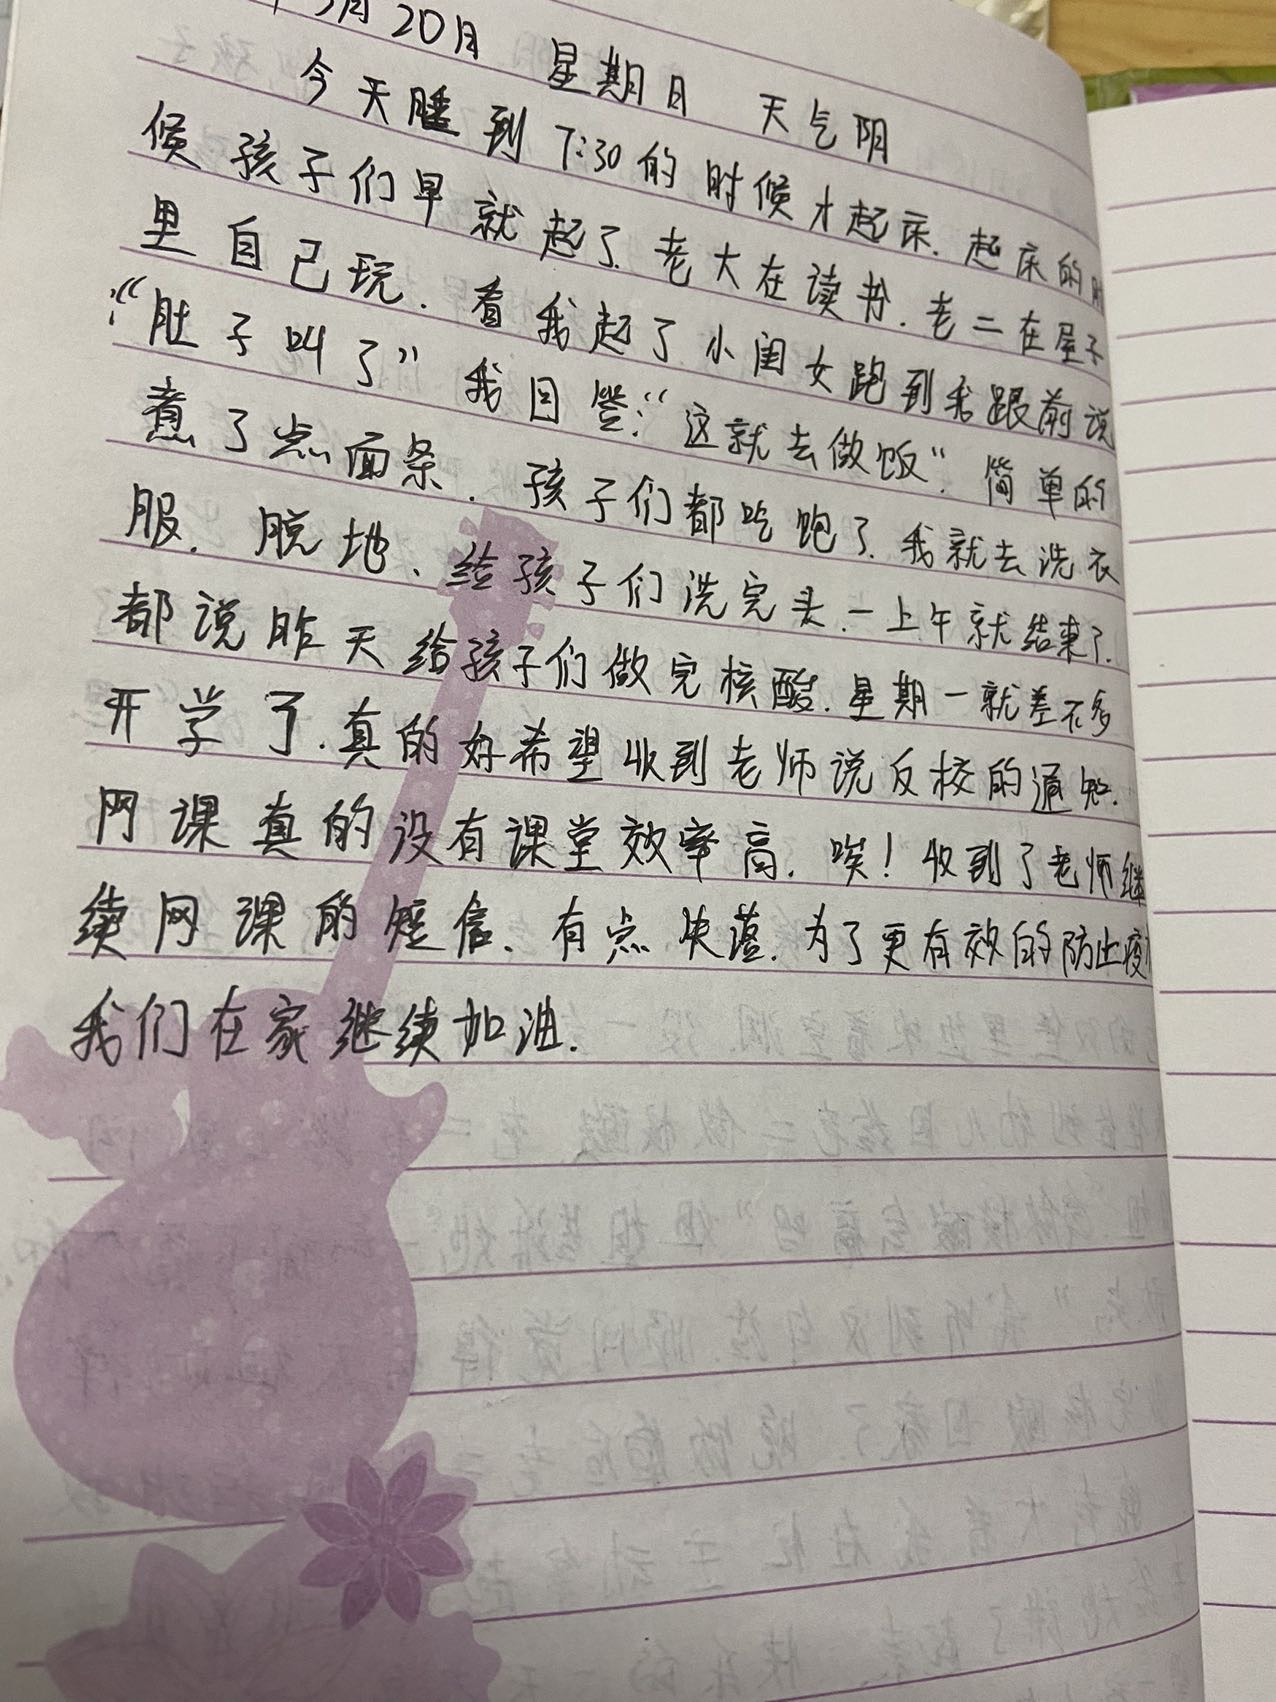 3月20日 星期日 天气阴
今天睡到7:30的时候才起床.起床的时
候孩子们早就起了.老大在读书.老二在屋子
里自己玩.看我起了小闺女跑到我跟前说
:“肚子叫了”我回答:“这就去做饭”.简单的
煮了点面条.孩子们都吃饱了.我就去洗衣
服.脱地、给孩子们洗完头.一上午就结束了.
都说昨天给孩子们做完核酸.星期一就差不多
开学了.真的好希望收到老师说反校的通知.
网课真的没有课堂效率高.唉!收到了老师继
续网课的短信、有点失落.为了更有效的防止疫
我们在家继续加油.